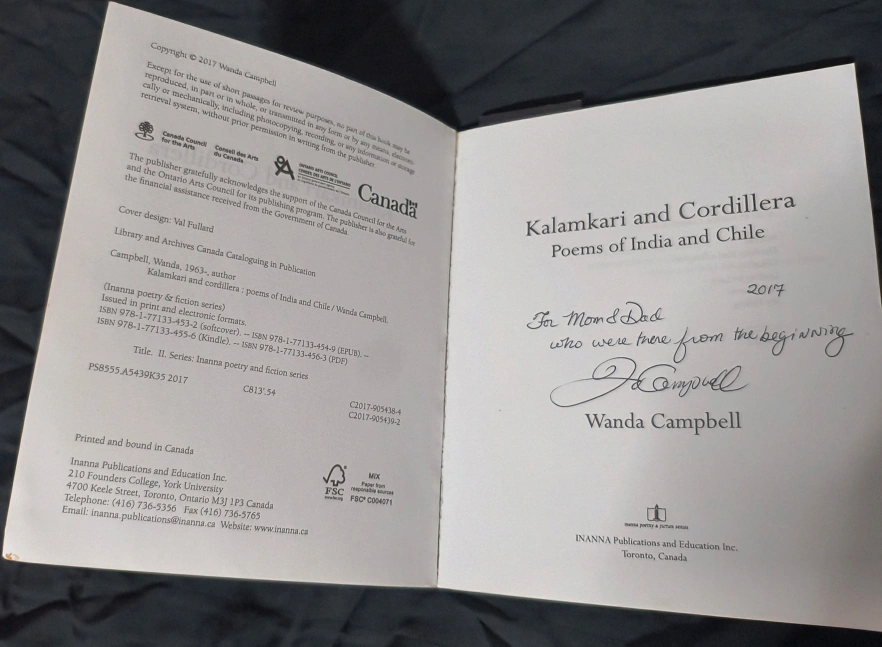 Copyright © 2017 Wanda Campbell
Except for the use of short passages for review purposes, no part of this book may be
reproduced, in part or in whole, or transmitted in any form or by any means, electroni-
cally or mechanically, including photocopying, recording, or any information or storage
retrieval system, without prior permission in writing from the publisher.
Canada Council for the Arts
Conseil des Arts du Canada
ONTARIO ARTS COUNCIL
CONSEIL DES ARTS DE L'ONTARIO
Canada
The publisher gratefully acknowledges the support of the Canada Council for the Arts
and the Ontario Arts Council for its publishing program. The publisher is also grateful for
the financial assistance received from the Government of Canada.
Cover design: Val Fullard
Library and Archives Canada Cataloguing in Publication
Campbell, Wanda, 1963-, author
Kalamkari and cordillera : poems of India and Chile / Wanda Campbell.
(Inanna poetry & fiction series)
Issued in print and electronic formats.
ISBN 978-1-77133-453-2 (softcover). -- ISBN 978-1-77133-454-9 (EPUB). --
ISBN 978-1-77133-455-6 (Kindle). -- ISBN 978-1-77133-456-3 (PDF)
Title. II. Series: Inanna poetry and fiction series
PS8555.A5439K35 2017
C813'.54
C2017-905438-4
C2017-905439-2
Printed and bound in Canada
Inanna Publications and Education Inc.
210 Founders College, York University
4700 Keele Street, Toronto, Ontario M3J 1P3 Canada
Telephone: (416) 736-5356 Fax (416) 736-5765
Email: inanna.publications@inanna.ca Website: www.inanna.ca
FSC
MIX
Paper from
responsible sources
FSC® C004071
Kalamkari and Cordillera
Poems of India and Chile
2017
For Mom & Dad
who were there from the beginning
Campbell
Wanda Campbell
inanna poetry & fiction series
INANNA Publications and Education Inc.
Toronto, Canada